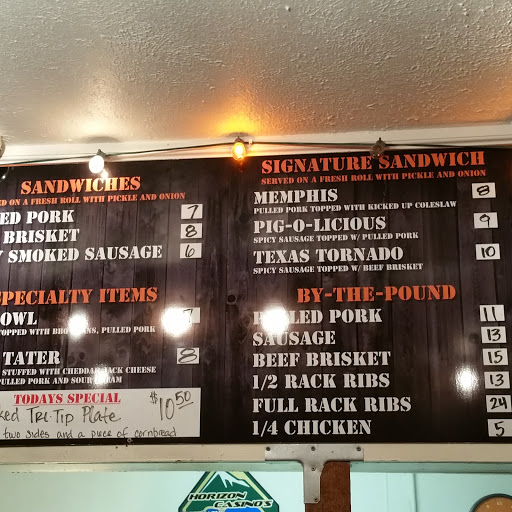 SANDWICHES
ED ON A FRESH ROLL WITH PICKLE AND ONION
ED PORK 7
BRISKET 8
SMOKED SAUSAGE 6
SPECIALTY ITEMS
OWL 7
TOPPED WITH BBQ PULLED PORK
TATER 8
STUFFED WITH CHEDDAR JACK CHEESE
PULLED PORK AND SOUR CREAM
TODAYS SPECIAL
ked Tri-Tip Plate $10.50
two sides and a piece of cornbread
SIGNATURE SANDWICH
SERVED ON A FRESH ROLL WITH PICKLE AND ONION
MEMPHIS 8
PULLED PORK TOPPED WITH KICKED UP COLESLAW
PIG-O-LICIOUS 9
SPICY SAUSAGE TOPPED W/ PULLED PORK
TEXAS TORNADO 10
SPICY SAUSAGE TOPPED W/ BEEF BRISKET
BY-THE-POUND
PULLED PORK 11
SAUSAGE 13
BEEF BRISKET 15
1/2 RACK RIBS 13
FULL RACK RIBS 24
1/4 CHICKEN 5
HORIZON
CASINO'S